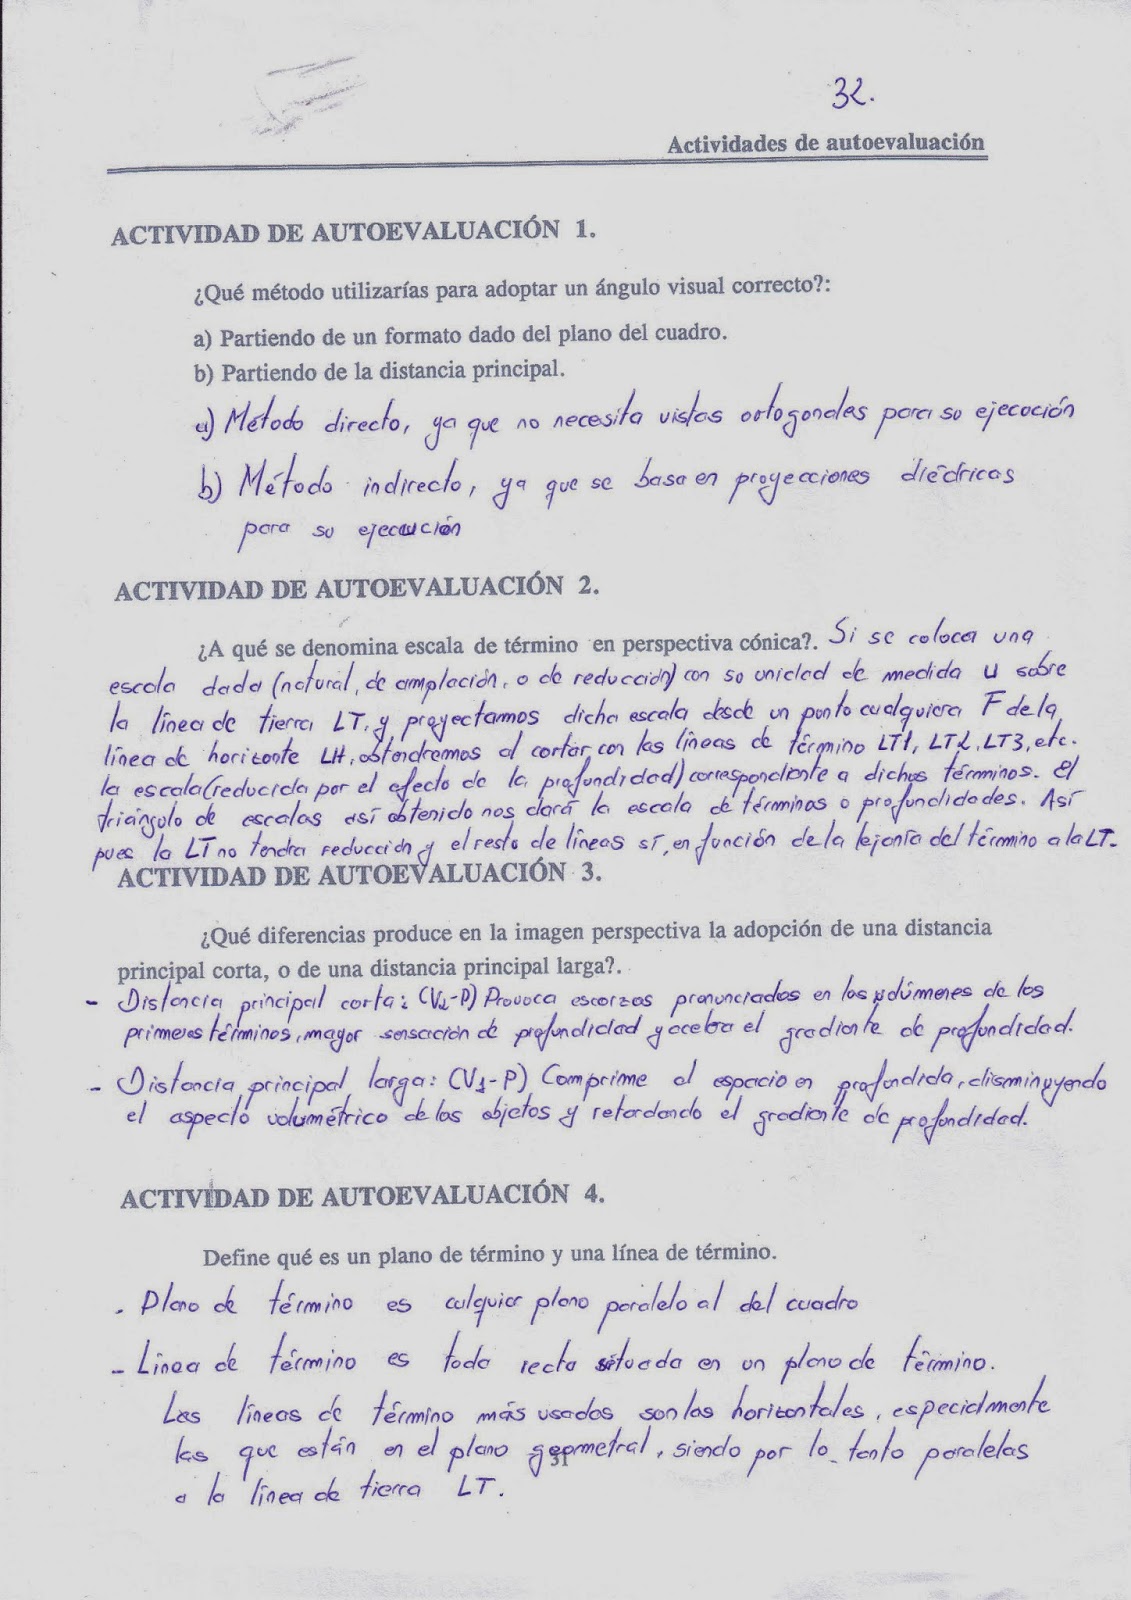 32.
Actividades de autoevaluación
ACTIVIDAD DE AUTOEVALUACIÓN 1.
¿Qué método utilizarías para adoptar un ángulo visual correcto?:
a) Partiendo de un formato dado del plano del cuadro.
b) Partiendo de la distancia principal.
a) Método directo, ya que no necesita vistas ortogonales para su ejecución
b) Método indirecto, ya que se basa en proyecciones diédricas
para su ejecución
ACTIVIDAD DE AUTOEVALUACIÓN 2.
¿A qué se denomina escala de término en perspectiva cónica?. Si se coloca una
escala dada (natural, de amplación, o de reducción) con su unidad de medida u sobre
la línea de tierra LT, y proyectamos dicha escala desde un punto cualquiera F de la
línea de horizonte LH, obtendremos al cortar con las líneas de término LT1, LT2, LT3, etc.
la escala (reducida por el efecto de la profundidad) correspondiente a dichos términos. El
triángulo de escalas así obtenido nos dará la escala de términos o profundidades. Así
pues la LT no tendra reducción y el resto de líneas sí, en función de la lejanía del término a la LT.
ACTIVIDAD DE AUTOEVALUACIÓN 3.
¿Qué diferencias produce en la imagen perspectiva la adopción de una distancia
principal corta, o de una distancia principal larga?.
- Distancia principal corta: (V2-P) Provoca escorzos pronunciados en los volúmenes de los
primeros términos, mayor sensación de profundidad y acelera el gradiente de profundidad.
- Distancia principal larga: (V1-P) Comprime el espacio en profundida, disminuyendo
el aspecto volumétrico de los objetos y retardando el gradiente de profundidad.
ACTIVIDAD DE AUTOEVALUACIÓN 4.
Define qué es un plano de término y una línea de término.
- Plano de término es culquier plano paralelo al del cuadro
- Linea de término es toda recta situada en un plano de término.
Las líneas de término más usadas son las horizontales, especialmente
las que están en el plano geometral, siendo por lo tanto paralelas
31
a la línea de tierra LT.